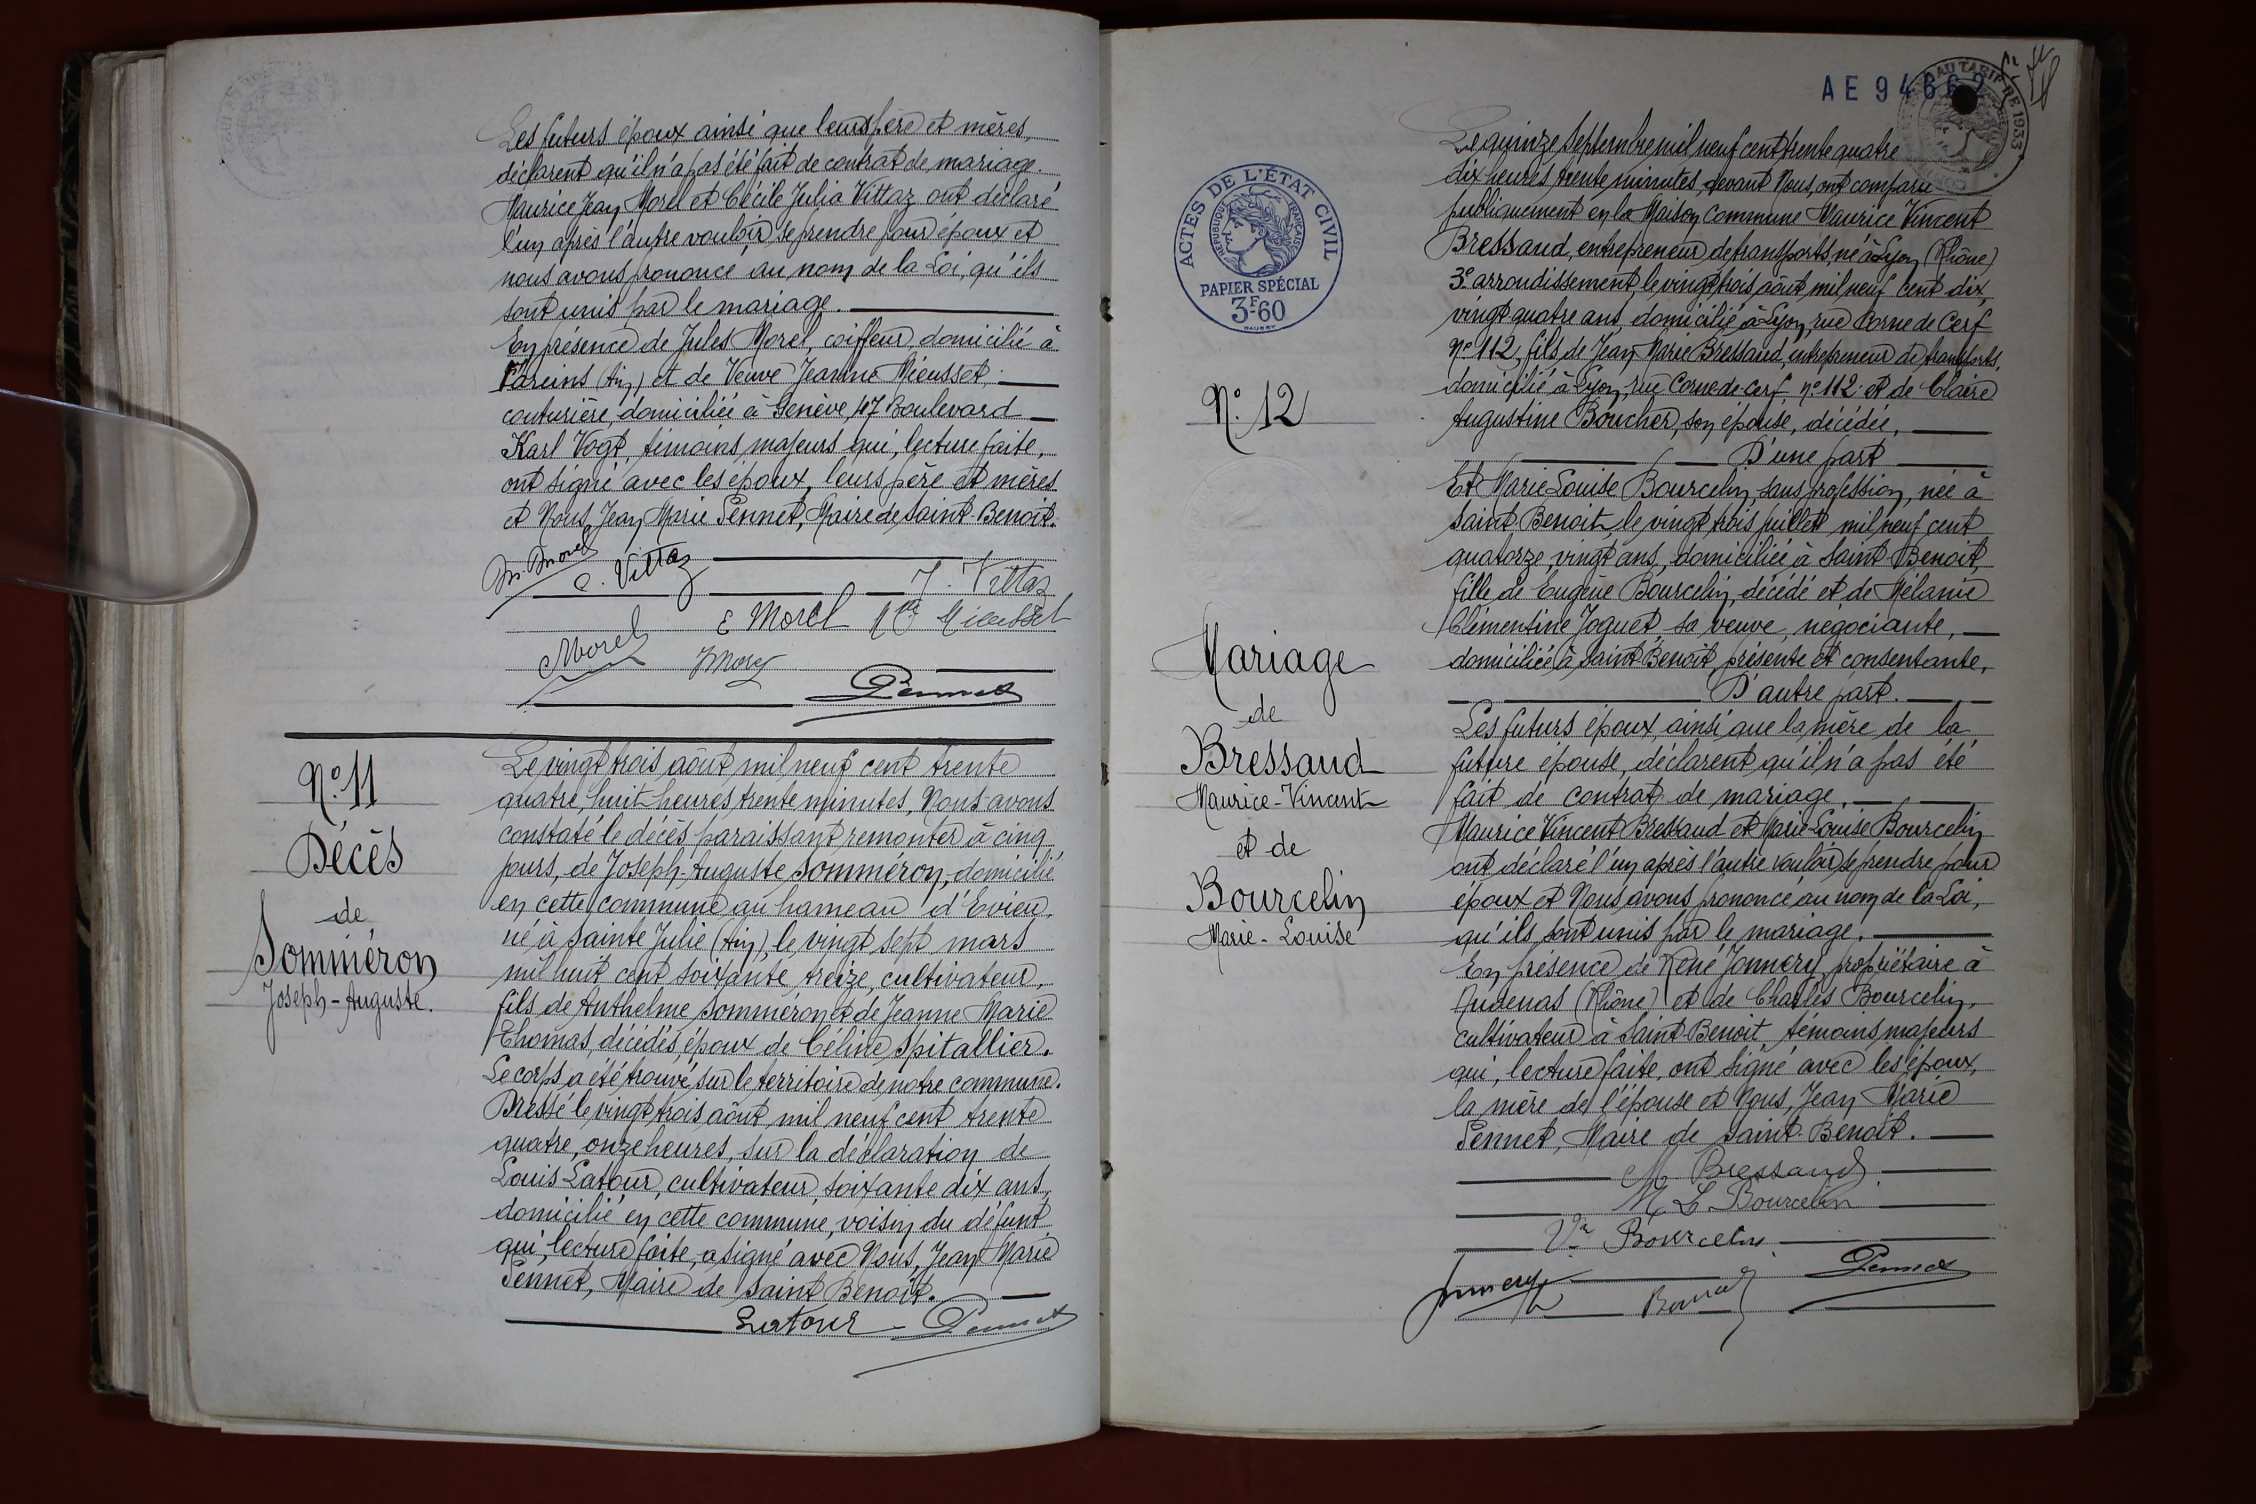 Les futurs époux ainsi que leurs père et mères,
déclarent qu'il n'a pas été fait de contrat de mariage.
Maurice Jean Morel et Cécile Julia Vittaz ont déclaré
l'un après l'autre vouloir se prendre pour époux et
nous avons prononcé au nom de la Loi, qu'ils
sont unis par le mariage.
En présence de Jules Morel, coiffeur, domicilié à
Fareins (Ain) et de Veuve Jeanne Mieusset,
couturière, domiciliée à Genève, 47 Boulevard
Karl Vogt, témoins majeurs qui, lecture faite,
ont signé avec les époux, leurs père et mères
et Nous, Jean Marie Pennet, Maire de Saint-Benoit.
M. Morel C. Vittaz J. Vittaz
E Morel Mieusset
Morel
Pennet
N° 11
Décès
de
Somméron
Joseph-Auguste.
Le vingt trois août mil neuf cent trente
quatre, huit heures trente minutes, Nous avons
constaté le décès paraissant remonter à cinq
jours, de Joseph-Auguste Somméron, domicilié
en cette commune au hameau d'Evieu,
né à Sainte Julie (Ain), le vingt sept mars
mil huit cent soixante treize, cultivateur,
fils de Anthelme Somméron et de Jeanne Marie
Thomas, décédés, époux de Céline Spitallier.
Le corps a été trouvé sur le territoire de notre commune.
Dressé le vingt trois août mil neuf cent trente
quatre, onze heures, sur la déclaration de
Louis Latour, cultivateur, soixante dix ans,
domicilié en cette commune, voisin du défunt
qui, lecture faite, a signé avec Nous, Jean Marie
Pennet, Maire de Saint Benoit.
Latour Pennet
AE 94662
ACTES DE L'ÉTAT CIVIL
RÉPUBLIQUE FRANÇAISE
PAPIER SPÉCIAL
3F.60
N° 12
Mariage
de
Bressand
Maurice-Vincent
et de
Bourcelin
Marie-Louise
Le quinze Septembre mil neuf cent trente quatre
dix heures trente minutes, devant Nous, ont comparu
publiquement en la Maison Commune Maurice Vincent
Bressand, entrepreneur de transports, né à Lyon (Rhône)
3e arrondissement, le vingt trois août mil neuf cent dix,
vingt quatre ans, domicilié à Lyon, rue Corne de Cerf
N° 112, fils de Jean Marie Bressand, entrepreneur de transports,
domicilié à Lyon, rue Corne-de-Cerf, n° 112 et de Claire
Augustine Boucher, son épouse, décédée,
D'une part
Et Marie-Louise Bourcelin, sans profession, née à
Saint Benoit, le vingt trois juillet mil neuf cent
quatorze, vingt ans, domiciliée à Saint Benoit,
fille de Eugène Bourcelin, décédé et de Mélanie
Clémentine Joguet, sa veuve, négociante,
domiciliée à Saint Benoit, présente et consentante,
D'autre part.
Les futurs époux, ainsi que la mère de la
future épouse, déclarent qu'il n'a pas été
fait de contrat de mariage.
Maurice Vincent Bressand et Marie-Louise Bourcelin
ont déclaré l'un après l'autre vouloir se prendre pour
époux et Nous avons prononcé au nom de la Loi,
qu'ils sont unis par le mariage.
En présence de René Jonnery, propriétaire à
(Rhône) et de Charles Bourcelin,
cultivateur à Saint Benoit, témoins majeurs
qui, lecture faite, ont signé avec les époux,
la mère de l'épouse et Nous, Jean Marie
Pennet, Maire de Saint-Benoit.
M Bressand
M L Bourcelin
Ve Bourcelin
Jonnery Pennet